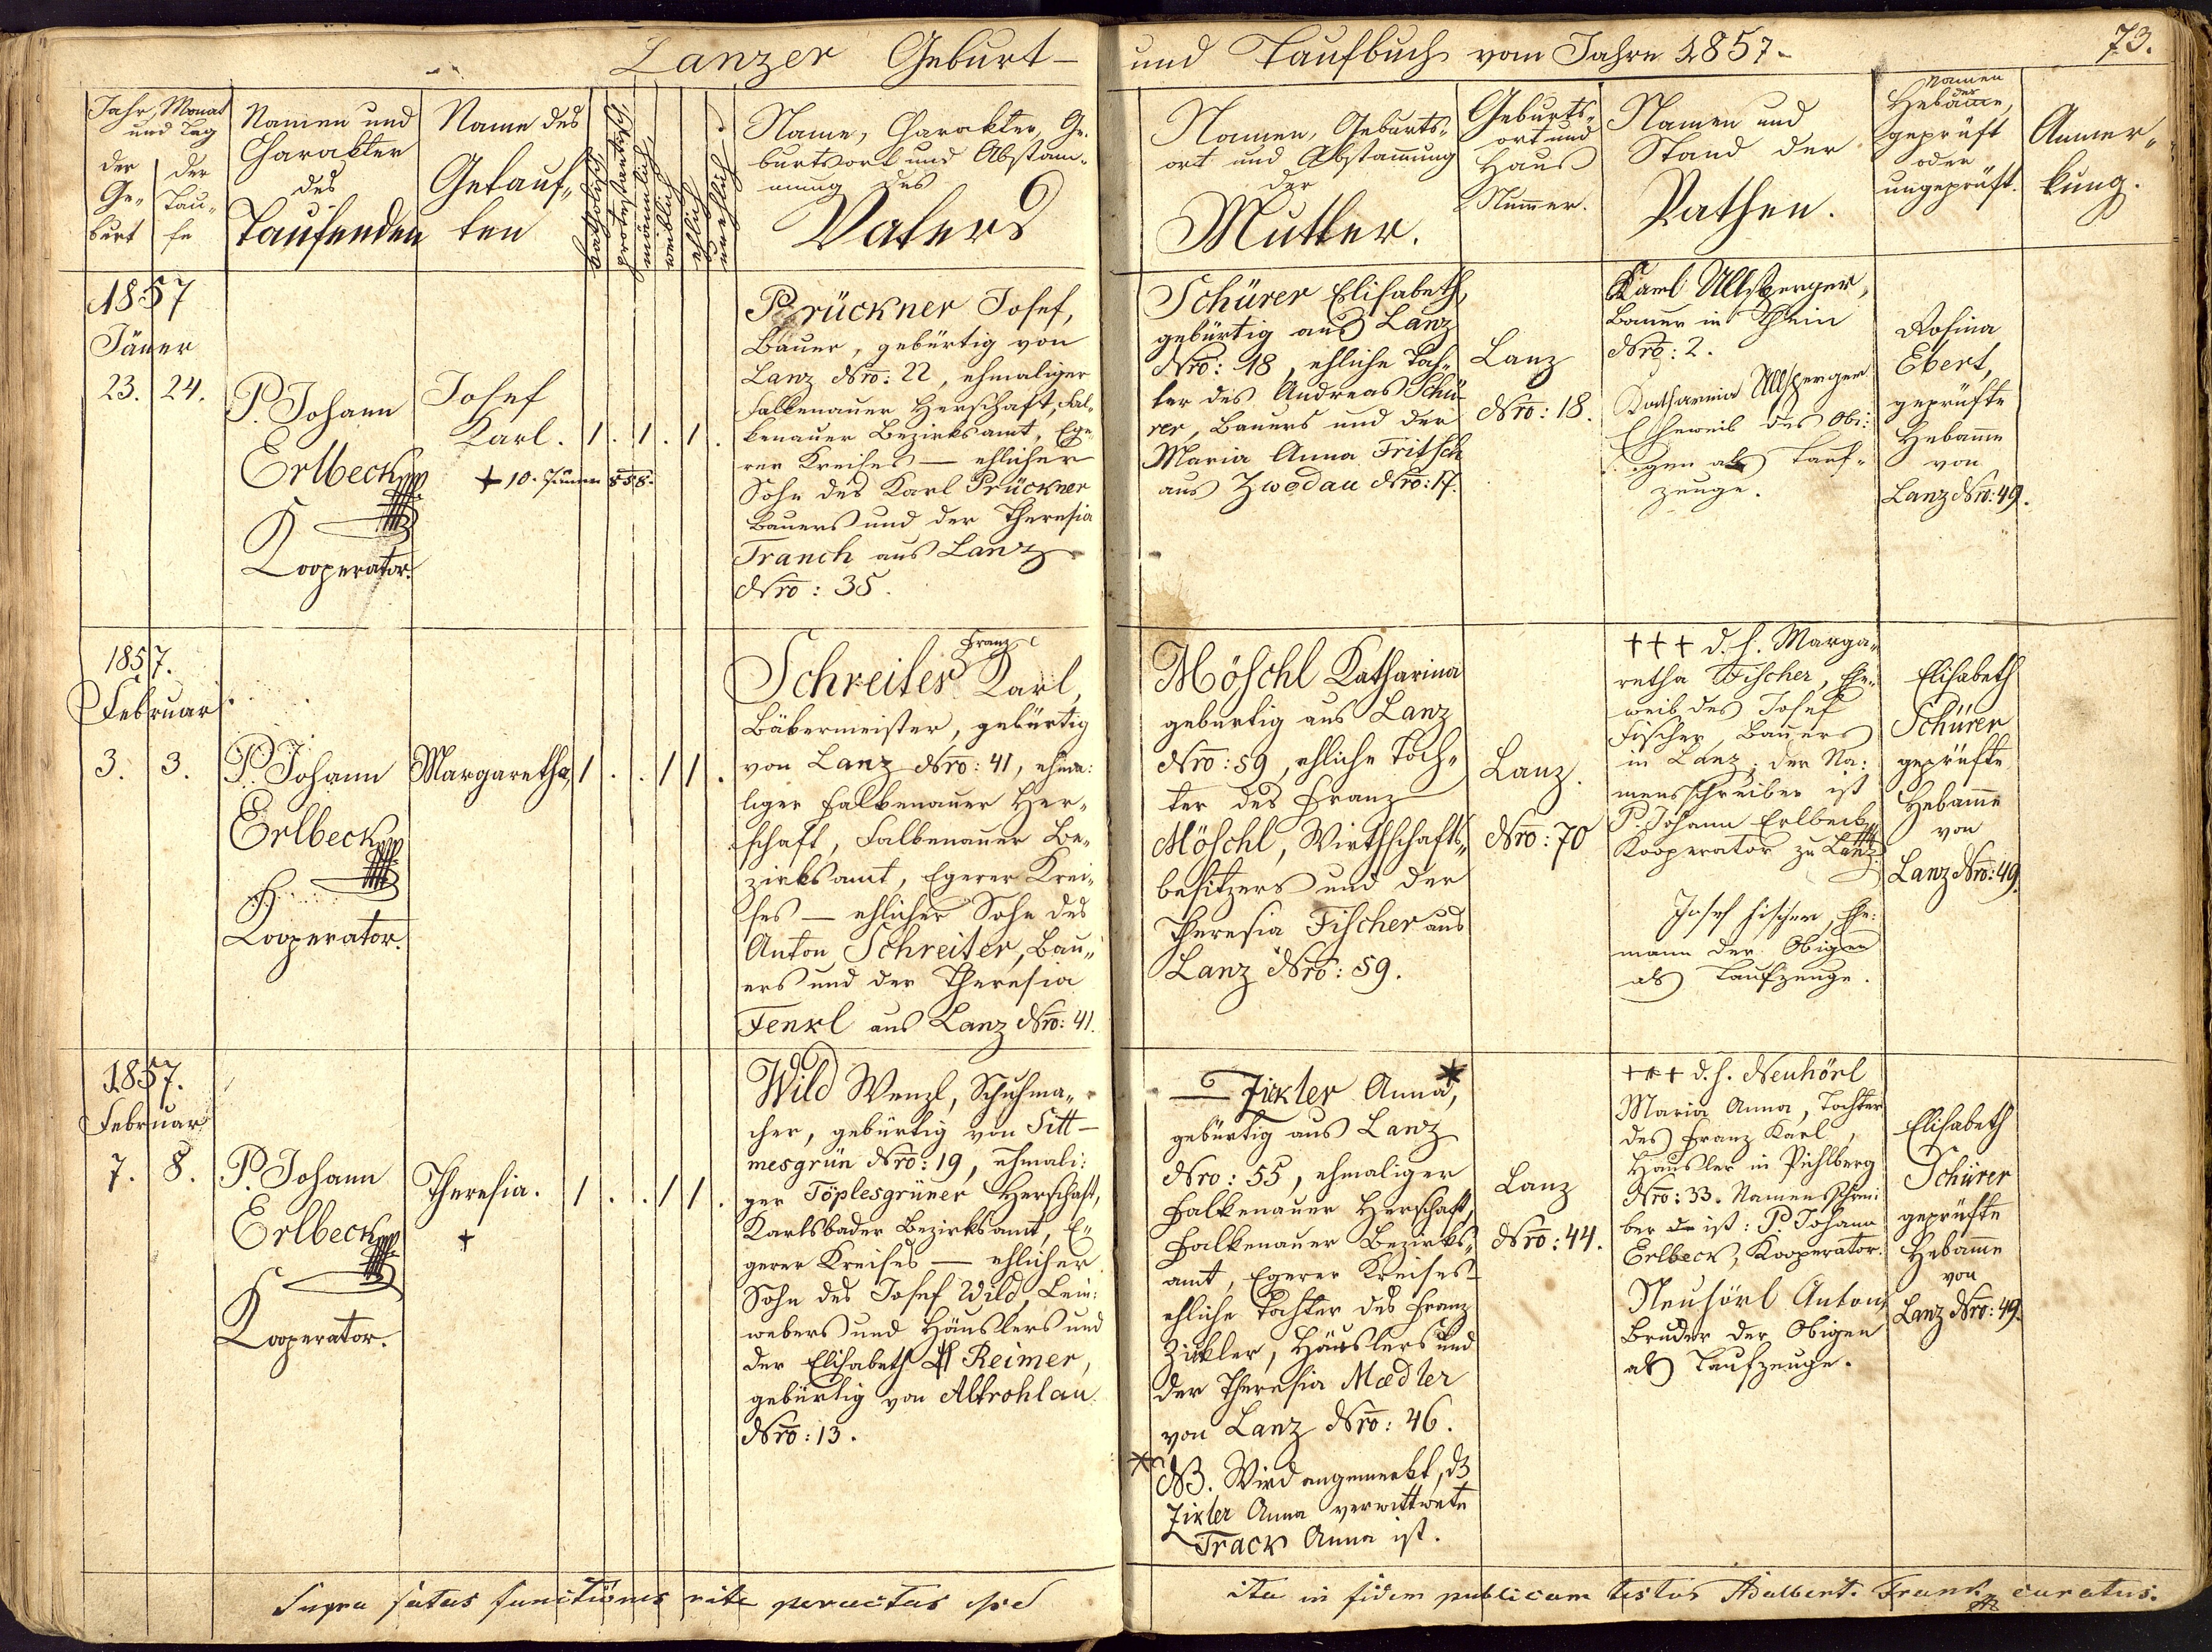 Lanzer Geburt-
und Taufbuch vom Jahre 1857.
73.
Jahr, Monat
und Tag
der
Ge-
burt
der
Tau-
fe
Namen und
Charakter
des
Taufenden
Name des
Getauf-
ten
katholisch
protestantisch
männlich
weiblich
ehlich
unehlich
Name, Charakter, Ge-
burtsort und Abstam-
mung des
Vaters
Namen, Geburts-
ort und Abstamung
der
Mutter.
Geburts-
ort und
Haus
Numer.
Namen und
Stand der
Pathen.
Namen
der
Hebame,
geprüft
oder
ungeprüft.
Anmer-
kung.
1857
Jäner
23. 24.
P. Johann
Erlbeck
Kooperator.
Josef
Karl.
+ 10. Jänner 858.
1 . 1 . 1 .
Prückner Josef,
Bauer, gebürtig von
Lanz Nro: 22, ehmaliger
Falkenauer Herschaft, Fal-
kenauer Bezirksamt, Ege-
rer Kreises — ehlicher
Sohn des Karl Prückner
Bauers und der Theresia
Tranch aus Lanz
Nro: 35.
Schürer Elisabeth,
gebürtig aus Lanz
Nro: 18, ehliche Toch-
ter des Andreas Schü-
rer, Bauers und der
Maria Anna Fritsch
aus Zwodau Nro: 17.
Lanz
Nro: 18.
Karl Ullsperger,
Bauer in Thein
Nro: 2.
Katharina Ullsperger
Eheweib des Obi-
gen als Tauf-
zeuge.
Rosina
Ebert,
geprüfte
Hebame
von
Lanz Nro: 49.
1857.
Februar
3. 3.
P. Johann
Erlbeck
Kooperator.
Margaretha
1 . . 1 1 .
Franz
Schreiter Karl,
Bäkermeister, gebürtig
von Lanz Nro: 41, ehma:
liger Falkenauer Her-
schaft, Falkenauer Be-
zirksamt, Egerer Krei-
ses — ehlicher Sohn des
Anton Schreiter, Bau-
ers und der Theresia
Fenkl aus Lanz Nro: 41.
Möschl Katharina
gebürtig aus Lanz
Nro: 59, ehliche Toch-
ter des Franz
Möschl, Wirthschafts-
besitzers und der
Theresia Fischer aus
Lanz Nro: 59.
Lanz.
Nro: 70
+++ d. h. Marga-
retha Fischer, Ehe-
weib des Josef
Fischer, Bauers
in Lanz; der Na-
mensschreiber ist
P. Johann Erlbeck
Kooperator zu Lanz.
Josef Fischer, Ehe-
mann der Obigen
als Taufzeuge.
Elisabeth
Schürer
geprüfte
Hebame
von
Lanz Nro: 49.
1857.
Februar
7. 8.
P. Johann
Erlbeck
Kooperator.
Theresia.
+
1 . . 1 1 .
Wild Wenzl, Schuhma-
cher, gebürtig von Sitt-
mesgrün Nro: 19, ehmali:
ger Töplesgrüner Herschaft,
Karlsbader Bezirksamt, E-
gerer Kreises — ehlicher
Sohn des Josef Wild, Lein-
webers und Häuslers und
der Elisabeth Reimer,
gebürtig von Altrohlau
Nro: 13.
— Zickler Anna*,
gebürtig aus Lanz
Nro: 55, ehmaliger
Falkenauer Herschaft,
Falkenauer Bezirks-
amt, Egerer Kreises-
ehliche Tochter des Franz
Zickler, Häuslers und
der Theresia Mædler
von Lanz Nro: 46.
* NB. Wird angemerkt, dß
Zikler Anna verwittwete
Track Anna ist.
Lanz
Nro: 44.
+++ d. h. Neuhörl
Maria Anna, Tochter
des Franz Karl,
Häusler in Pichlberg
Nro: 33. Namensschrei:
ber ist: P. Johann
Erlbeck, Kooperator.
Neuhörl Anton,
Bruder der Obigen
als Taufzeuge.
Elisabeth
Schürer
geprüfte
Hebame
von
Lanz Nro: 49.
Supra fatas functiones rite peractas esse
ita in fidem publicam testor Adalbert. Frank curatus.